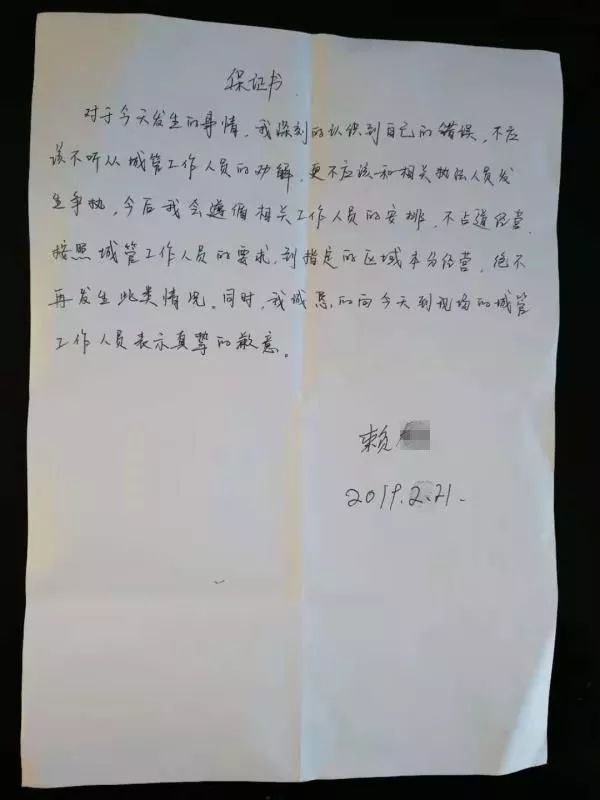 保证书
对于今天发生的事情,我深刻的认识到自己的错误,不应
该不听从城管工作人员的劝解,更不应该和相关执法人员发
生争执,今后我会遵循相关工作人员的安排,不占道经营,
按照城管工作人员的要求,到指定的区域本分经营,绝不
再发生此类情况。同时,我诚恳的向今天到现场的城管
工作人员表示真挚的歉意。
赖
2019.2.21.